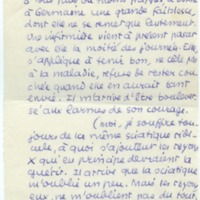 à Germaine une grande faiblesse,
dont elle ne se remet que lentement.
Une infirmière vient à présent passer
avec elle la moitié des journées. Elle
s'applique à tenir bon, ne cède pas
à la maladie, refuse de rester cou-
chée quand elle en aurait tant
envie. Il m'arrive d'être boulever-
sé aux larmes de son courage.
(Moi, je souffre tou-
jours de la même sciatique ridi-
cule, à quoi s'ajoutent les rayons
X qui en principe devraient la
guérir. Il arrive que la sciatique
m'oublie un peu. Mais les rayons
eux, ne m'oublient pas du tout,